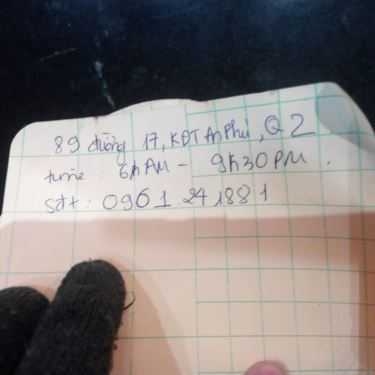 89 đường 17, KĐT An Phú, Q2
time : 6h AM - 9h30 PM .
sđt : 0961 241881